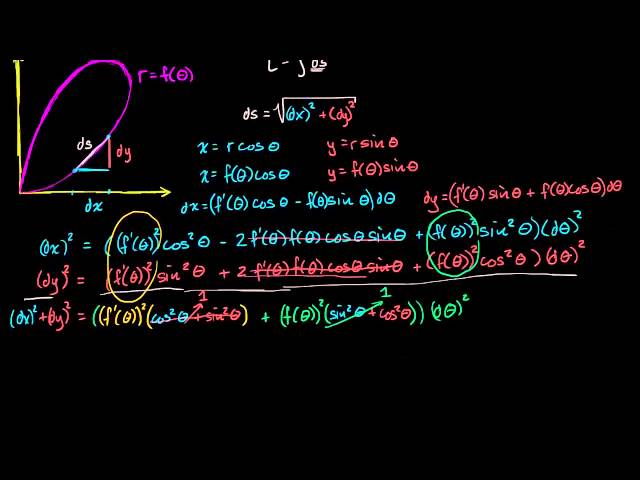 r = f(θ)
ds = √((dx)² + (dy)²)
ds
dy
dx
x = r cos θ y = r sin θ
x = f(θ) cos θ y = f(θ) sin θ
dx = (f'(θ) cos θ - f(θ) sin θ) dθ dy = (f'(θ) sin θ + f(θ) cos θ) dθ
(dx)² = ((f'(θ))² cos² θ - 2 f'(θ) f(θ) cos θ sin θ + (f(θ))² sin² θ) (dθ)²
(dy)² = (f'(θ))² sin² θ + 2 f'(θ) f(θ) cos θ sin θ + (f(θ))² cos² θ) (dθ)²
1 1
(dx)² + (dy)² = ((f'(θ))² (cos² θ + sin² θ) + (f(θ))² (sin² θ + cos² θ)) (dθ)²